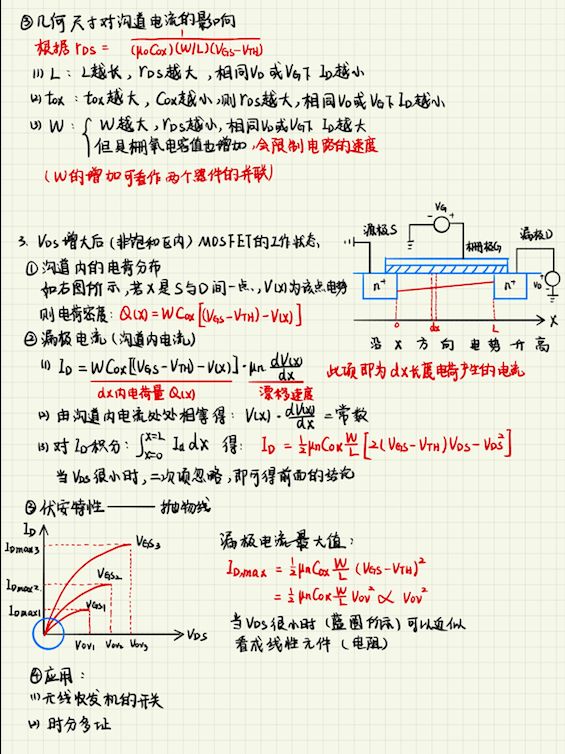 ③几何尺寸对沟道电流的影响
根据 rDS = 1/((μnCox)(W/L)(VGS-VTH))
(1) L：L越长，rDS越大，相同VD或VG下 ID越小
(2) tox：tox越大，Cox越小，则rDS越大，相同VD或VG下 ID越小
(3) W：{ W越大，rDS越小，相同VD或VG下 ID越大
但是栅氧电容值也增加，会限制电路的速度
(W的增加可看作两个器件的并联)
3. VDS增大后（非饱和区内）MOSFET的工作状态
①沟道内的电荷分布
如右图所示，若X是S与D间一点，V(X)为该点电势
则电荷密度：Q(X)=WCox[(VGS-VTH)-V(X)]
VG
源极S
栅极G
漏极D
n+
n+
VD
0
dx
L
X
沿 X 方向 电势升高
②漏极电流（沟道内电流）
(1) ID = WCox[(VGS-VTH)-V(X)]·μn dV(X)/dx
dx内电荷量 Q(X)
漂移速度
此项即为dx长度电荷产生的电流
(2) 由沟道内电流处处相等得：V(X)·dV(X)/dx = 常数
(3) 对ID积分：∫x=0 x=L Id dx 得：ID = ½μnCox W/L [2(VGS-VTH)VDS-VDS²]
当VDS很小时，二次项忽略，即可得前面的结论
③伏安特性——抛物线
ID
IDmax3
IDmax2
IDmax1
VGS3
VGS2
VGS1
VOV1
VOV2
VOV3
VDS
漏极电流最大值：
ID,max = ½μnCox W/L (VGS-VTH)²
= ½μnCox W/L VOV² ∝ VOV²
当VDS很小时（蓝圈所示）可以近似
看成线性元件（电阻）
④应用：
(1)无线收发机的开关
(2) 时分多址